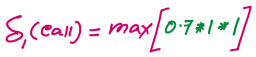 δ₁(call) = max[0.7*1*1]